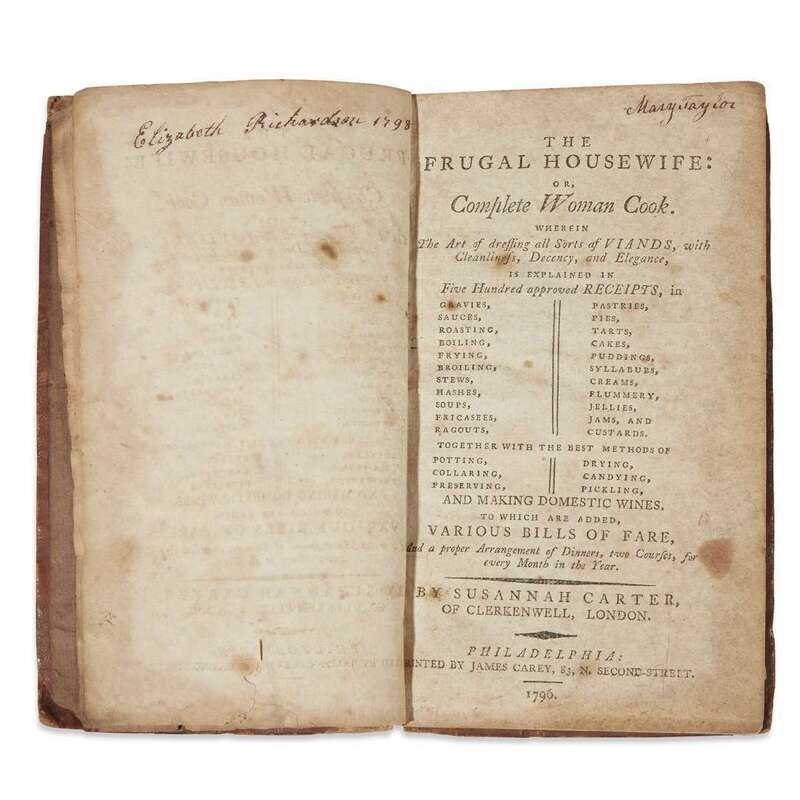 Elizabeth Richardson 1798
Mary Taylor
THE
FRUGAL HOUSEWIFE:
OR,
Complete Woman Cook.
WHEREIN
The Art of dreſſing all Sorts of VIANDS, with
Cleanlineſs, Decency, and Elegance,
IS EXPLAINED IN
Five Hundred approved RECEIPTS, in
GRAVIES,
SAUCES,
ROASTING,
BOILING,
FRYING,
BROILING,
STEWS,
HASHES,
SOUPS,
FRICASEES,
RAGOUTS,
PASTRIES,
PIES,
TARTS,
CAKES,
PUDDINGS,
SYLLABUBS,
CREAMS,
FLUMMERY,
JELLIES,
JAMS, AND
CUSTARDS.
TOGETHER WITH THE BEST METHODS OF
POTTING,
COLLARING,
PRESERVING,
DRYING,
CANDYING,
PICKLING,
AND MAKING DOMESTIC WINES.
TO WHICH ARE ADDED,
VARIOUS BILLS OF FARE,
And a proper Arrangement of Dinners, two Courſes, for
every Month in the Year.
BY SUSANNAH CARTER,
OF CLERKENWELL, LONDON.
PHILADELPHIA:
PRINTED BY JAMES CAREY, 83, N. SECOND-STREET.
1796.